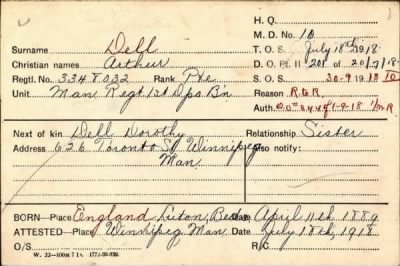 H. Q.
M. D. No. 10
Surname Dell T. O. S. July 18th 1918
Christian names Arthur D. O. Pt. II 201 of 20/7/18
Regtl. No. 3348032 Rank Pte S. O. S. 30-9 1918
Unit Man Regt 1st Dps Bn Reason
Auth.
Next of kin Dell Dorothy Relationship Sister
Address 626 Toronto St Winnipeg Also notify:
Man.
BORN—Place England, Luton, Beds Date April 11th 1889
ATTESTED—Place Winnipeg Man. Date July 18th, 1918
O/S R/C